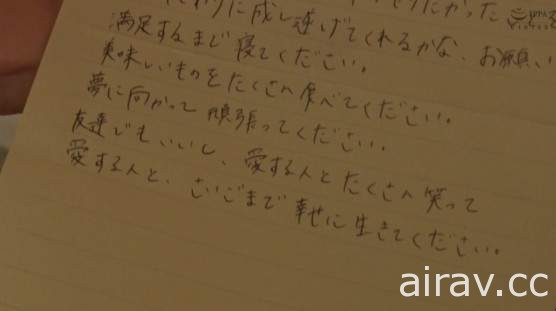 わりに成し遂げてくれるかな、お願い
満足するまで寝てください。
美味しいものをたくさん食べてください。
夢に向かって頑張ってください。
友達でもいいし、愛する人とたくさん笑って
愛する人と、さいごまで幸せに生きてください。
airav.cc